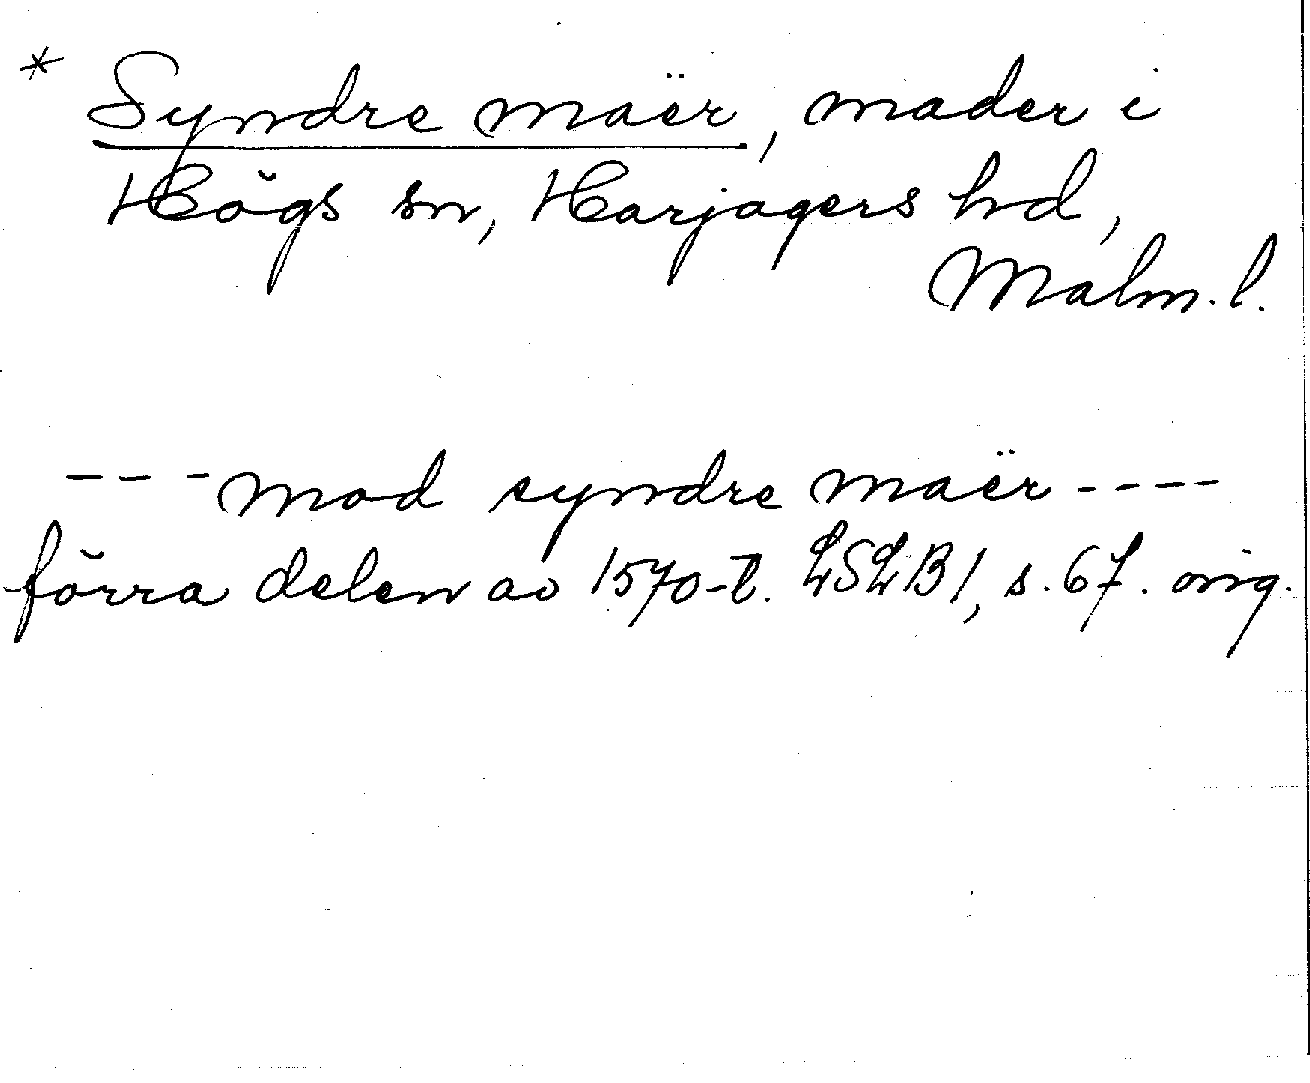 * Syndre maër, mader i
Högs sn, Harjagers hd,
Malm. l.
--- mod syndre maër ----
förra delen av 1570-t. LSLB 1, s. 67. orig.